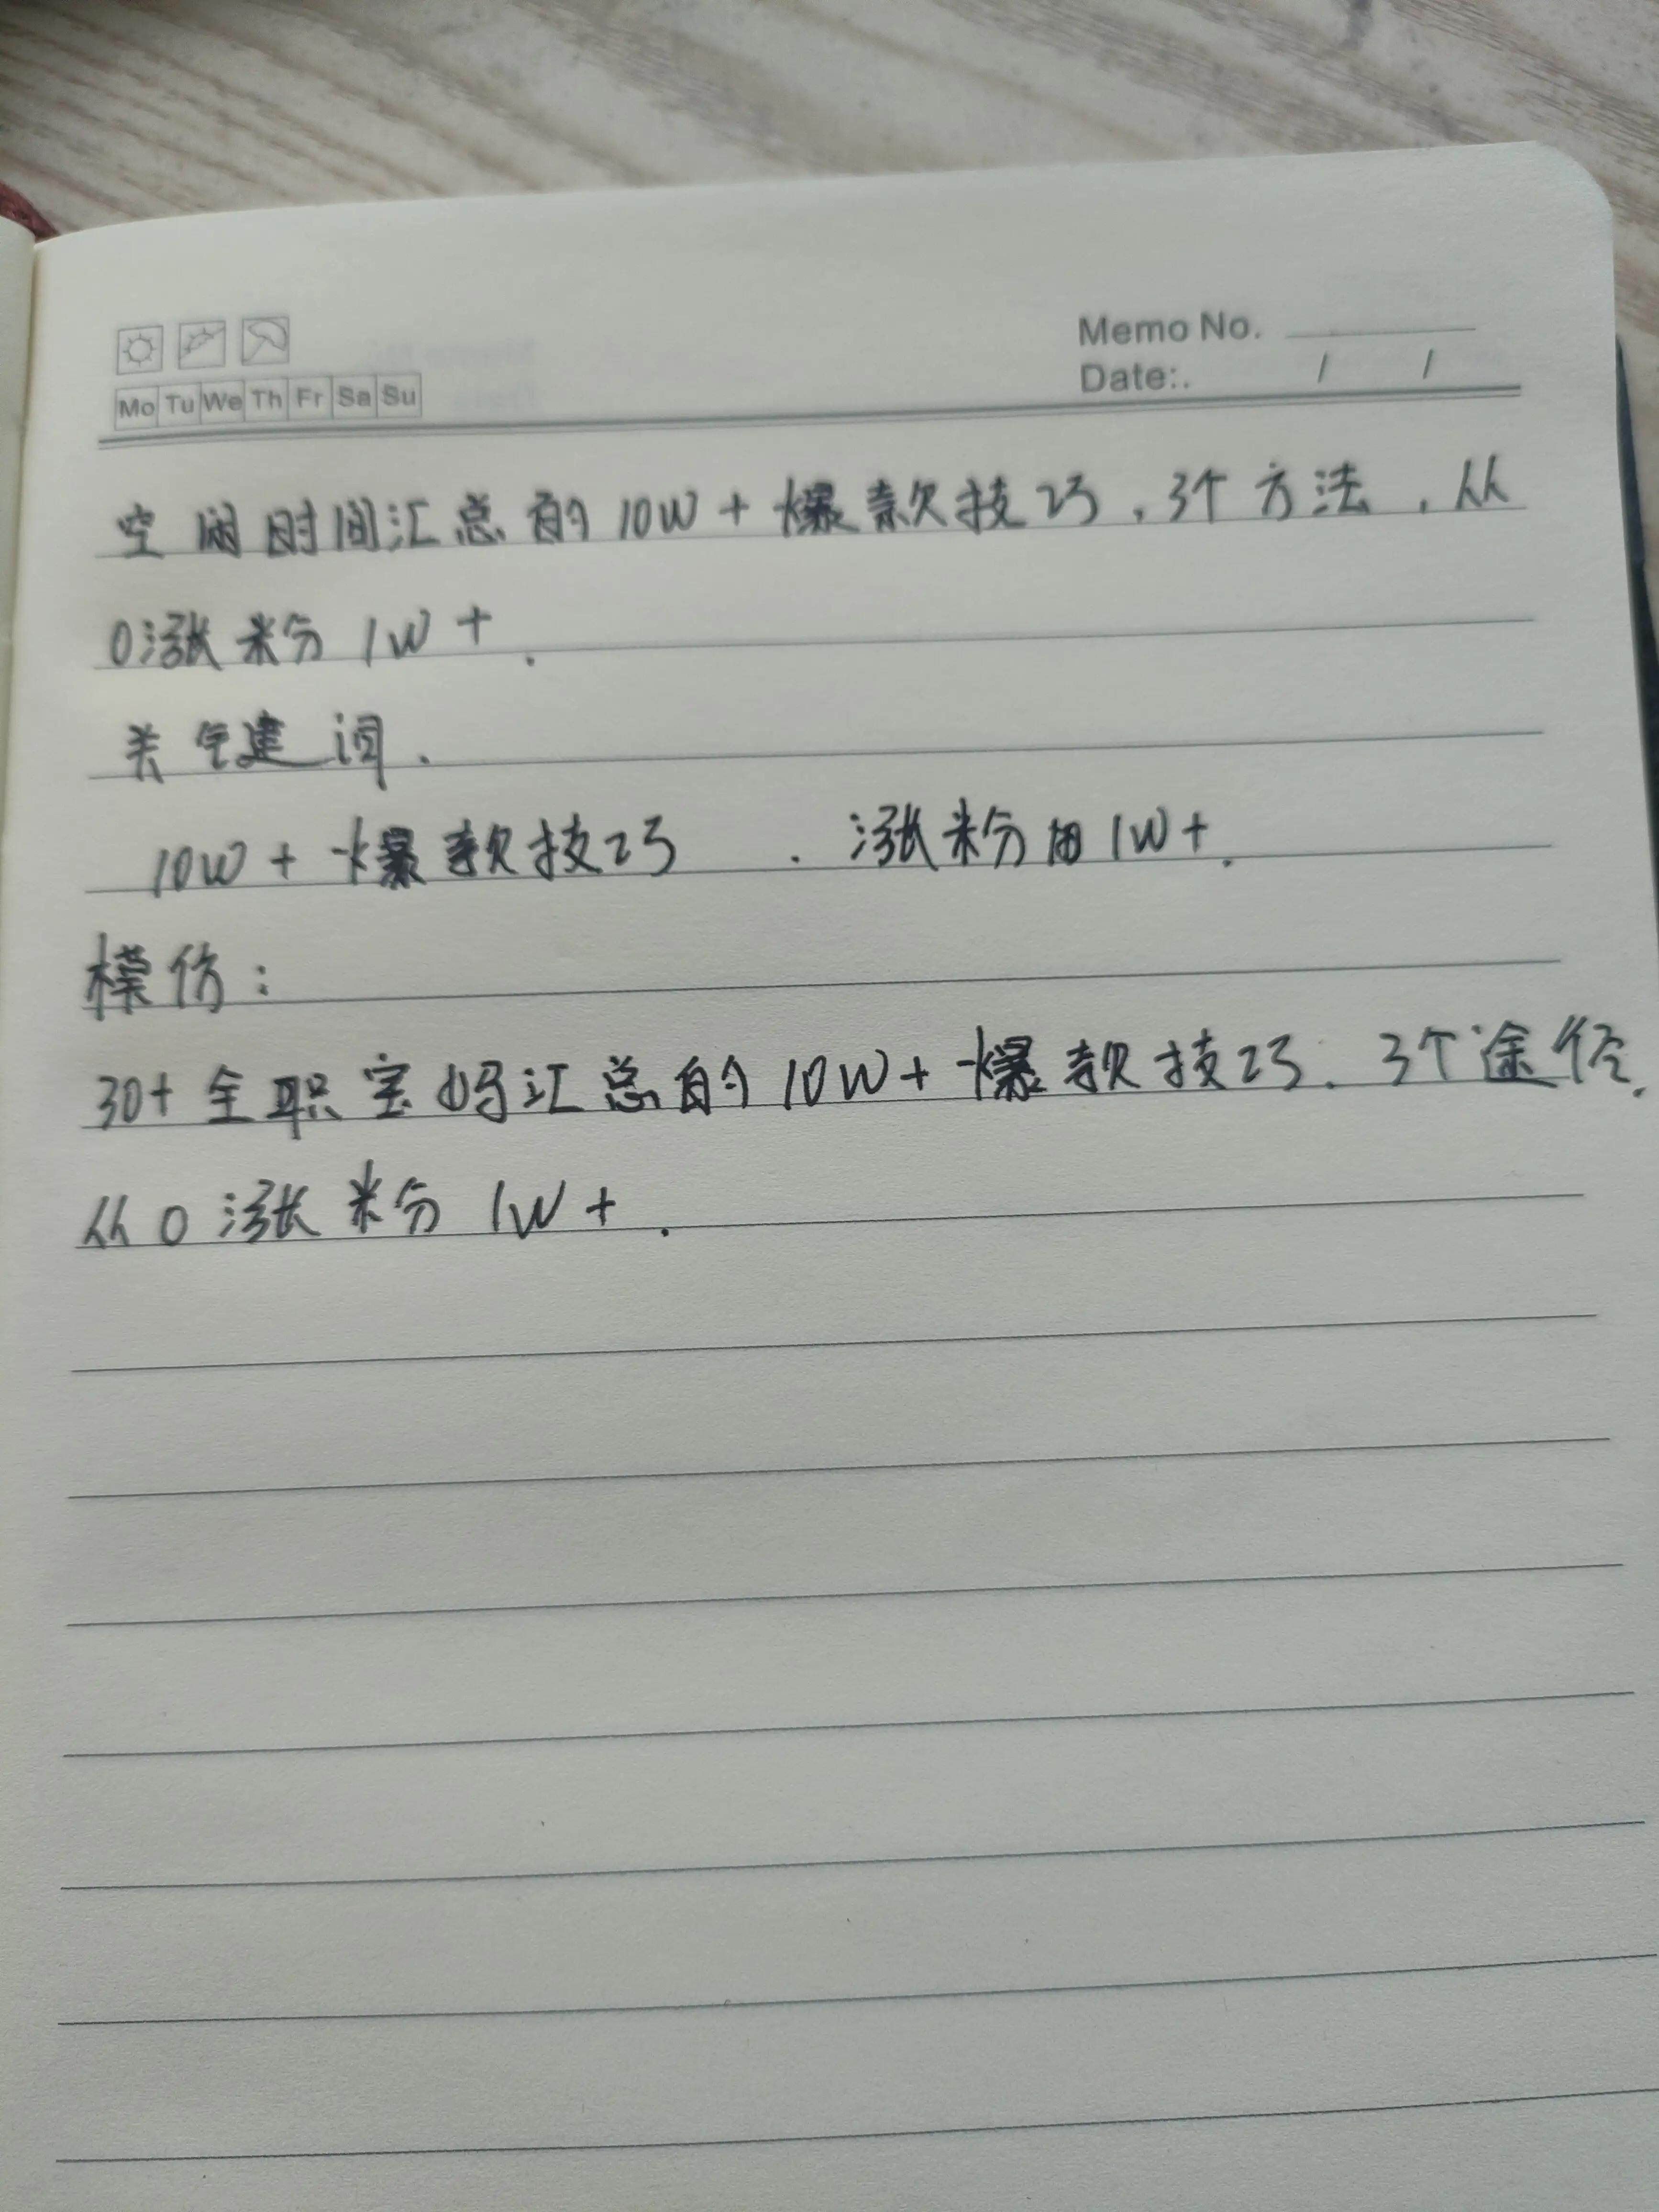 Memo No.
Mo Tu We Th Fr Sa Su
Date:. / /
空闲时间汇总的10W+爆款技巧，3个方法，从
0涨粉1W+.
关键词.
10W+爆款技巧 . 涨粉1W+.
模仿：
30+全职宝妈汇总的10W+爆款技巧.3个途径.
从0涨粉1W+.